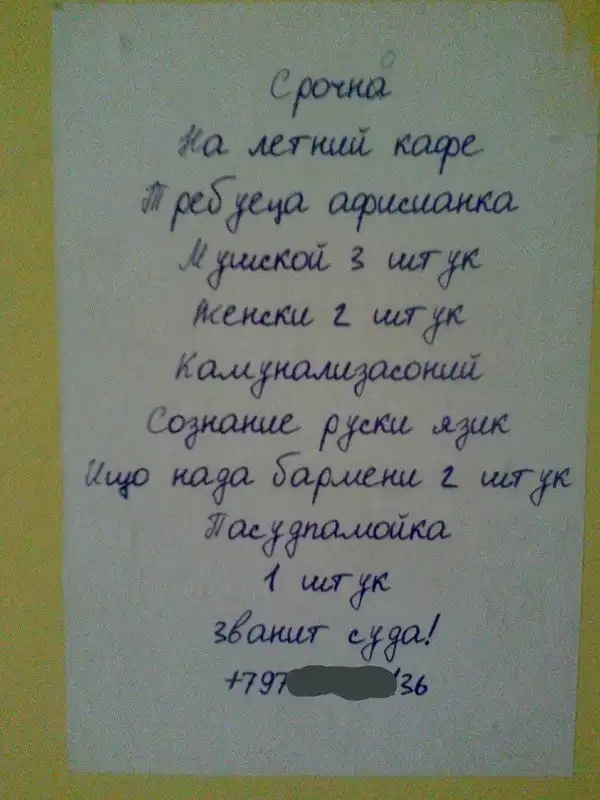 Срочна
На летний кафе
Требуеца афисианка
Мушской 3 штук
Женски 2 штук
Камунализасоний
Сознание руски язик
Ищо нада бармени 2 штук
Пасудпамойка
1 штук
Званит суда!
+797 36